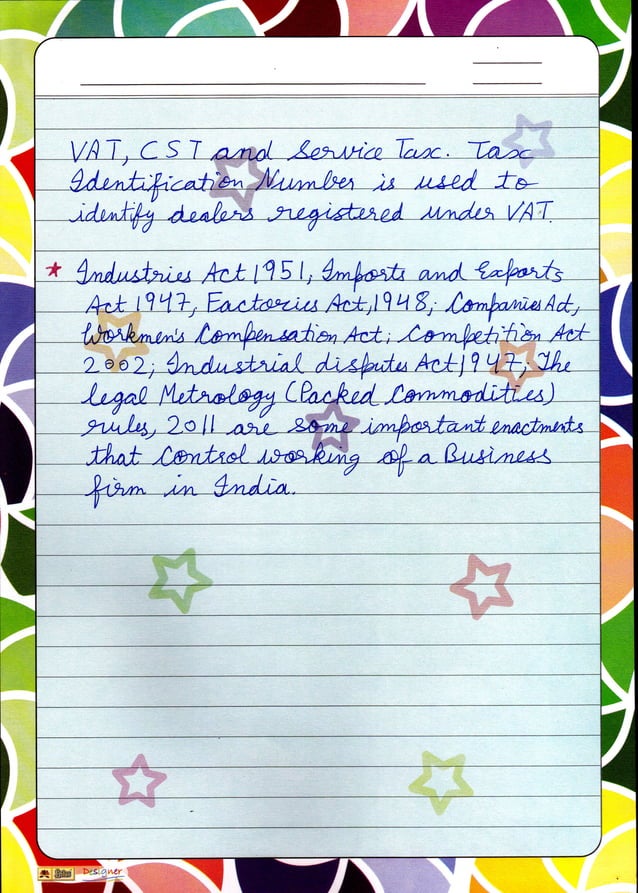 VAT, CST and Service Tax. Tax
Identification Number is used to
identify dealers registered under VAT.
★ Industries Act 1951, Imports and Exports
Act 1947, Factories Act, 1948; Companies Act,
Workmen's Compensation Act; Competition Act
2002; Industrial disputes Act 1947; The
legal Metrology (Packed Commodities)
rules, 2011 are some important enactments
that control working of a Business
firm in India.
Designer